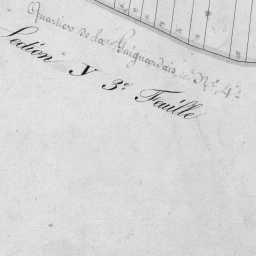 Quartier de la Guignardais N.º 4.º
Section Y 3.e Feuille